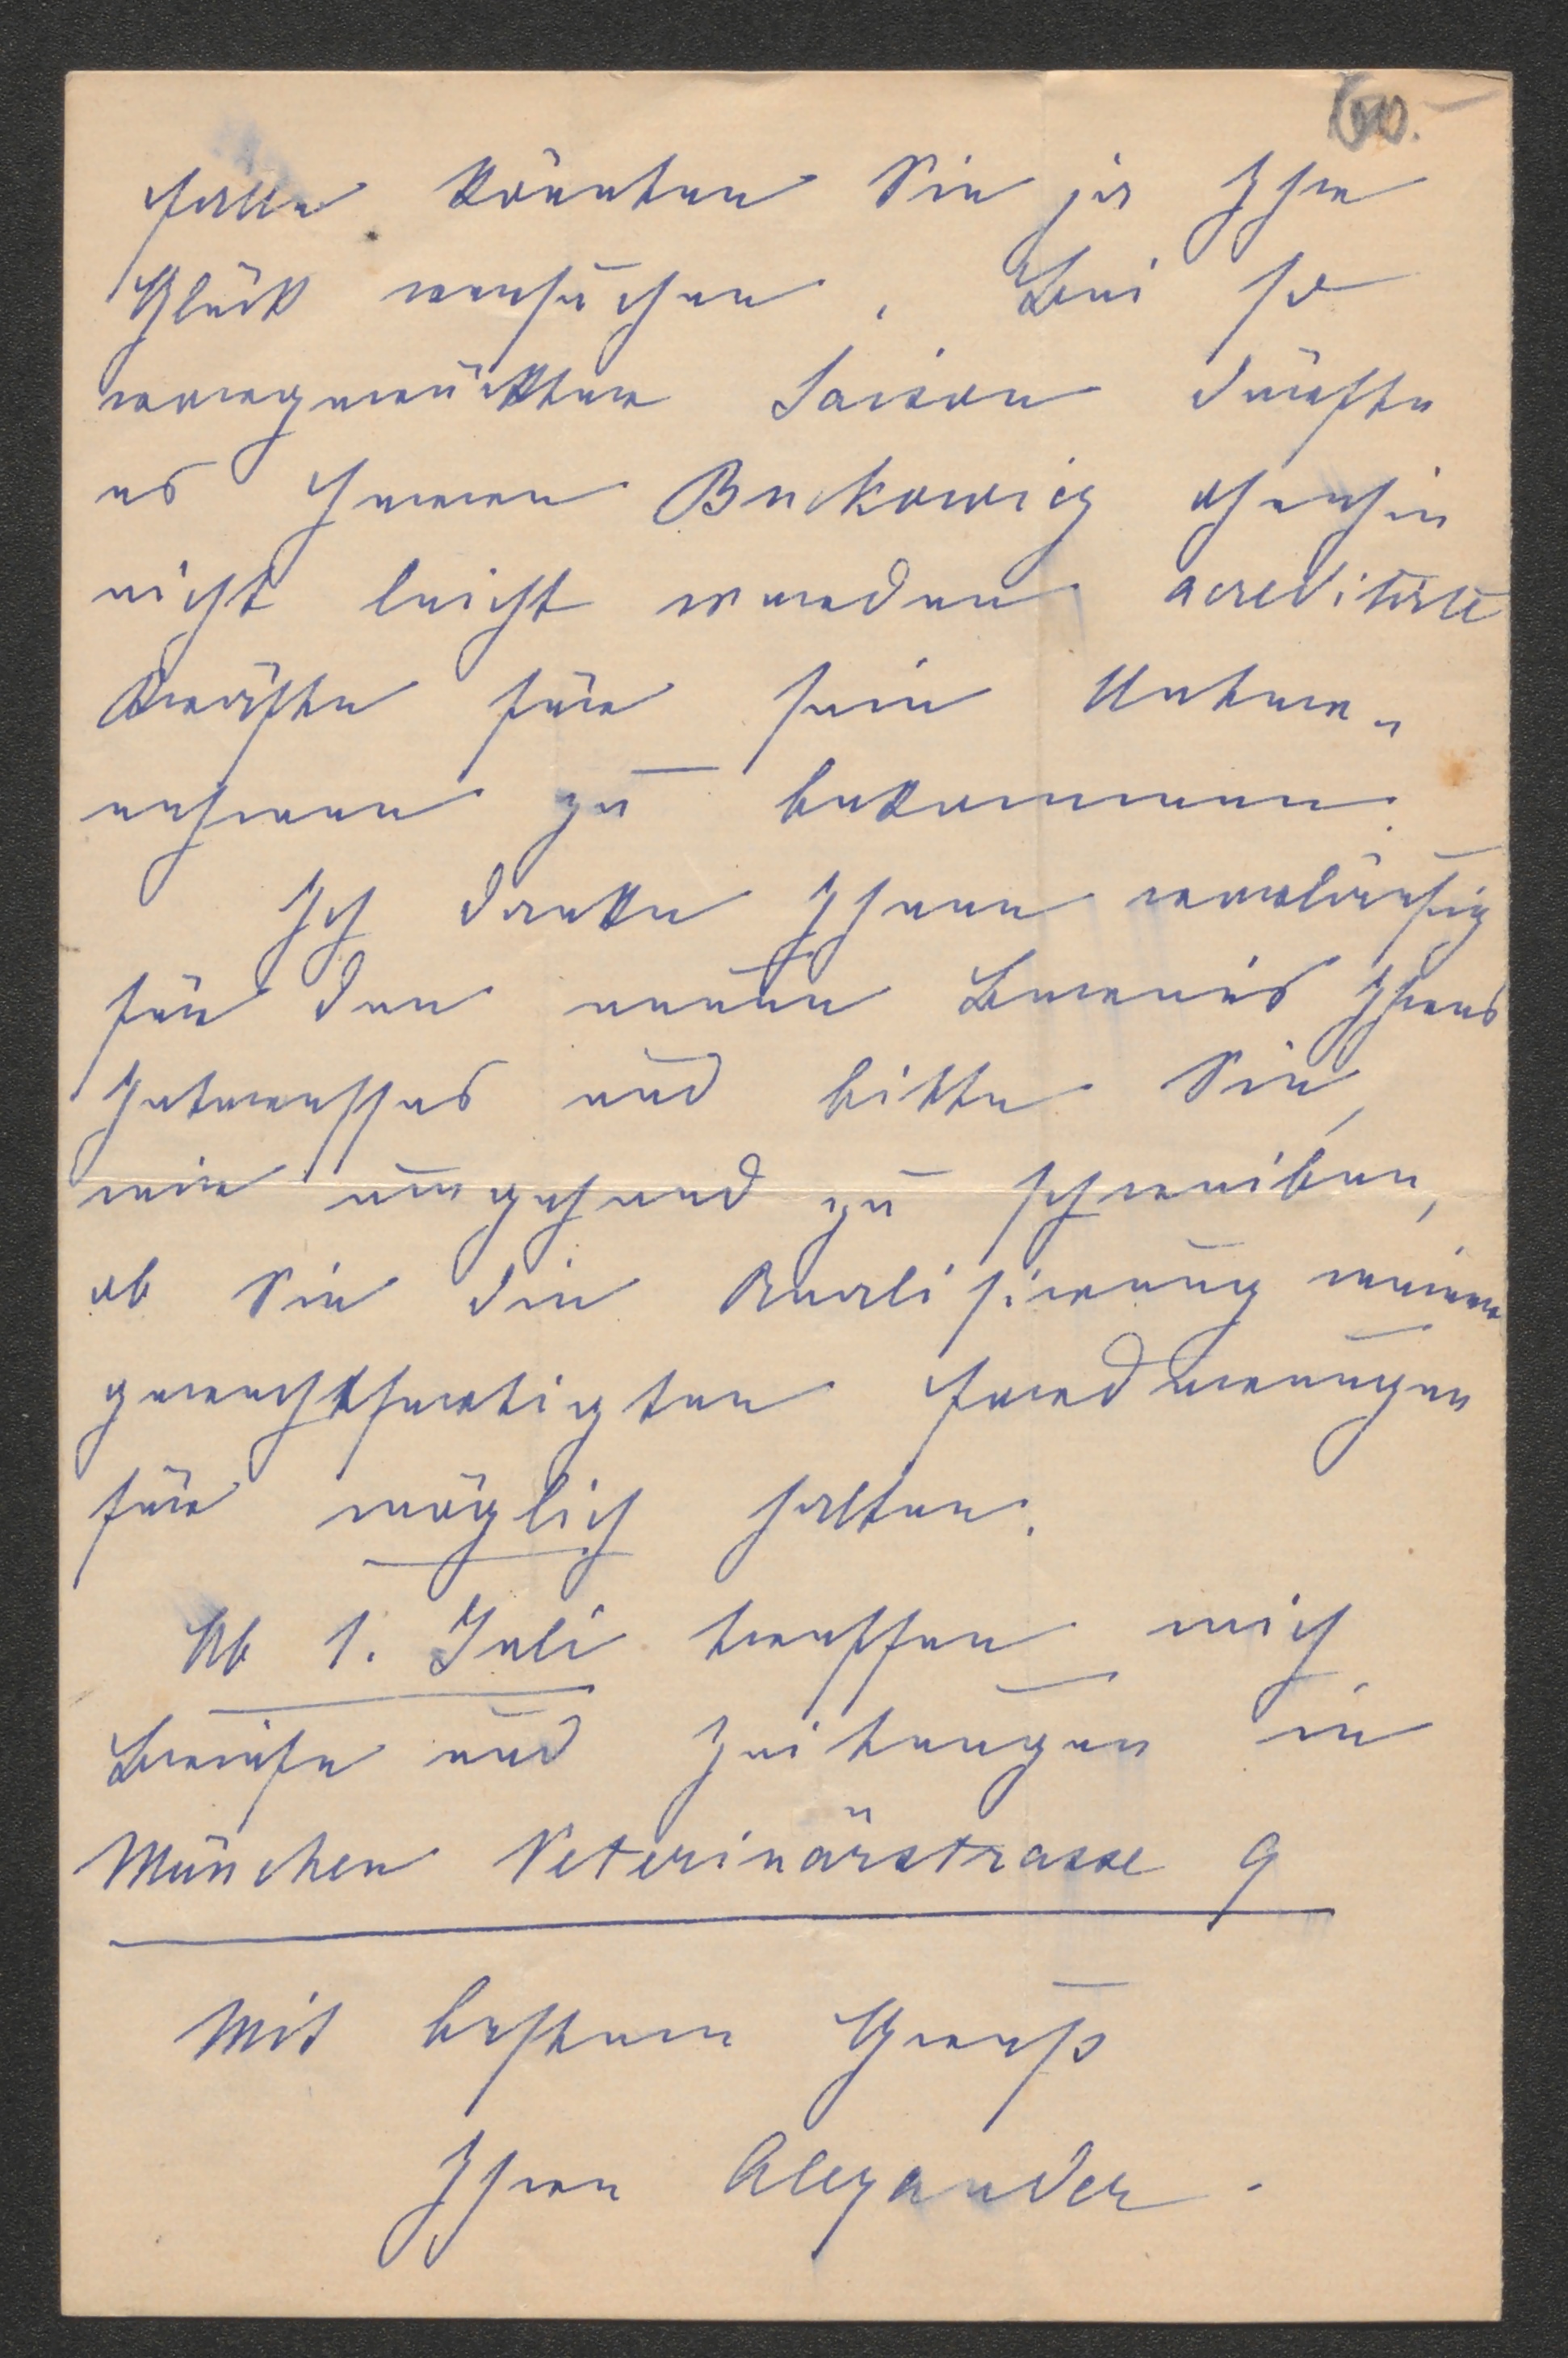 falle könnten Sie ja Ihr
Glück versuchen. Bei so
vorgerückter Saison dürfte
es Herrn Buckowicz ohnehin
nicht leicht werden acreditirte
Kräfte für sein Unter-
nehmen zu bekommen.
Ich danke Ihnen vorläufig
für den neuen Beweis Ihres
Interesses und bitte Sie,
mir umgehend zu schreiben,
ob Sie die Realisierung meiner
gerechtfertigten Forderungen
für möglich halten.
Ab 1. Juli treffen mich
Briefe und Zeitungen in
München Veterinärstrasse 9
Mit bestem Gruß
Ihr Alexander.